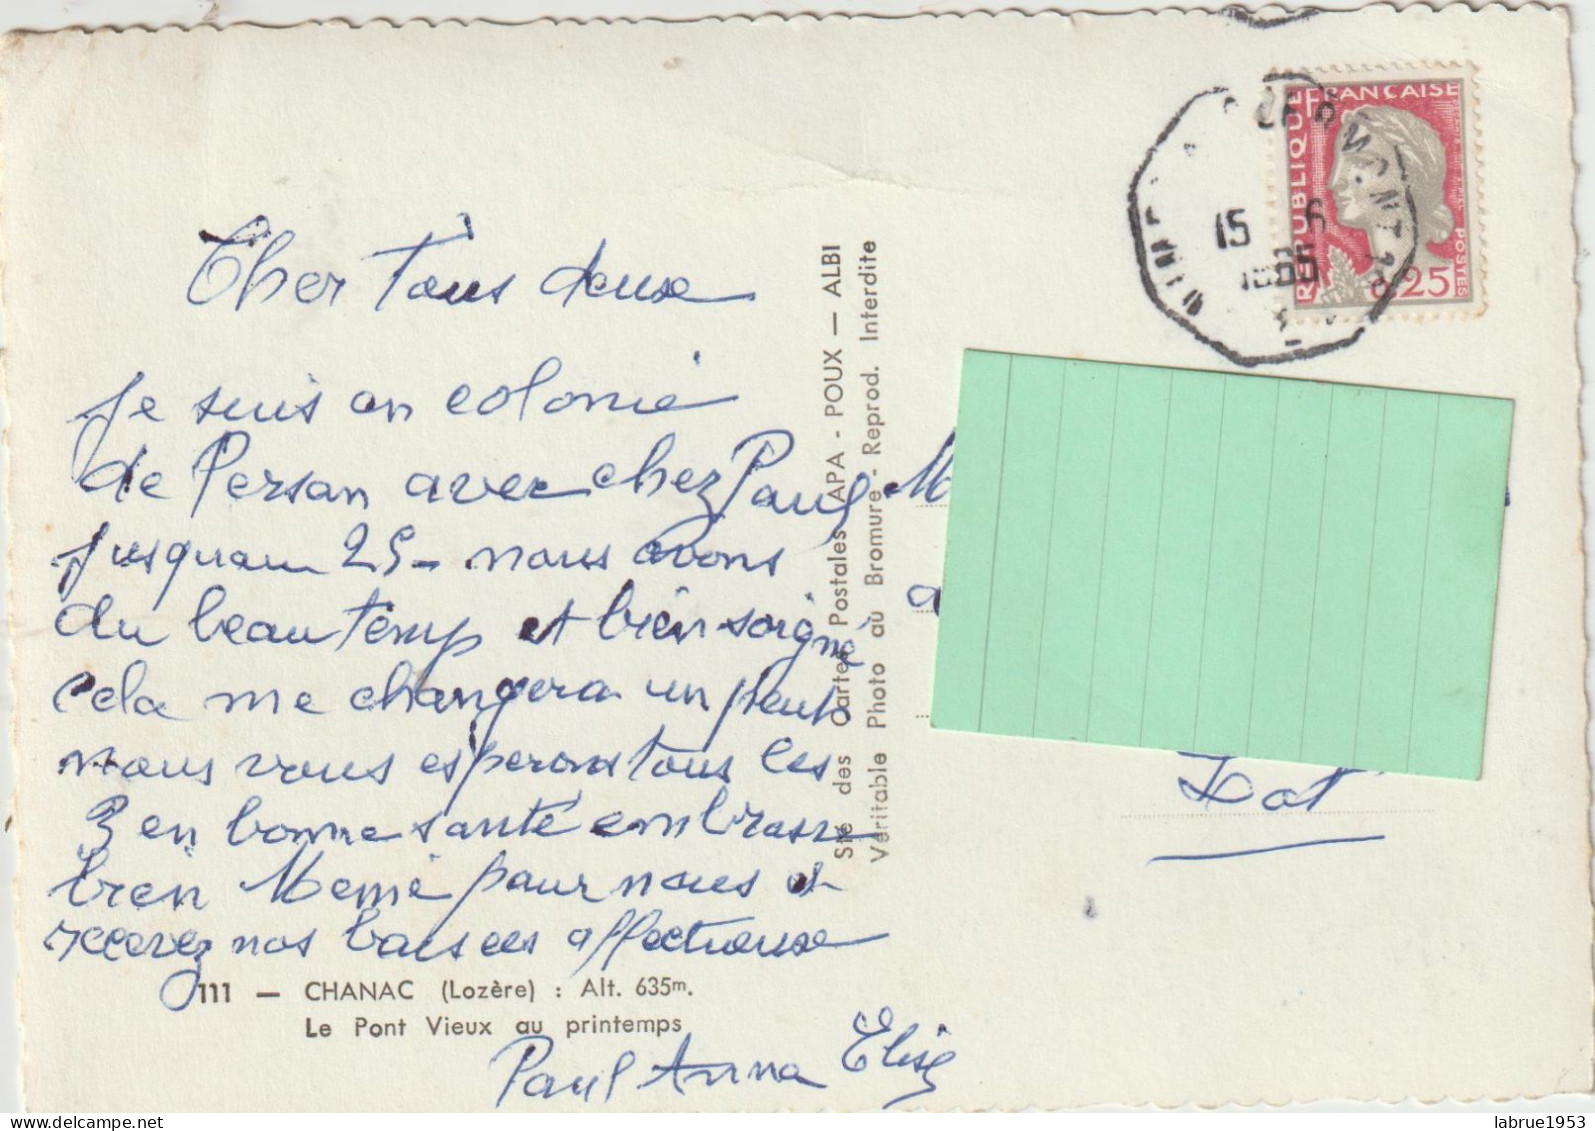 Cher Tous deux
Je suis en colonie
de Persan avec chez Paul
Jusquau 25 - nous avons
du beau temp et bien soigné
cela me changera un peut
nous vous esperons tous les
3 en bonne santé embrasse
bien Memé pour nous et
recevez nos baisees affectueuse
111 — CHANAC (Lozère) : Alt. 635m.
Le Pont Vieux au printemps
Paul Anna Elise
Sté des Cartes Postales APA - POUX — ALBI
Véritable Photo au Bromure - Reprod. Interdite
REPUBLIQUE FRANÇAISE
POSTES
0,25
15 6
1965
M
a
Lot
labrue1953